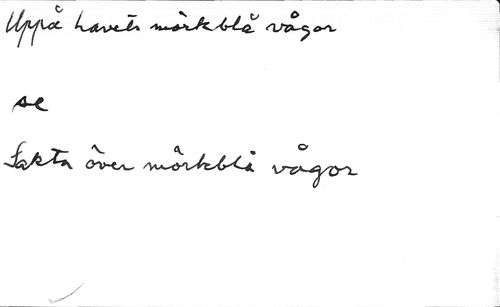 Uppå havets mörkblå vågor
se
Sakta över mörkblå vågor